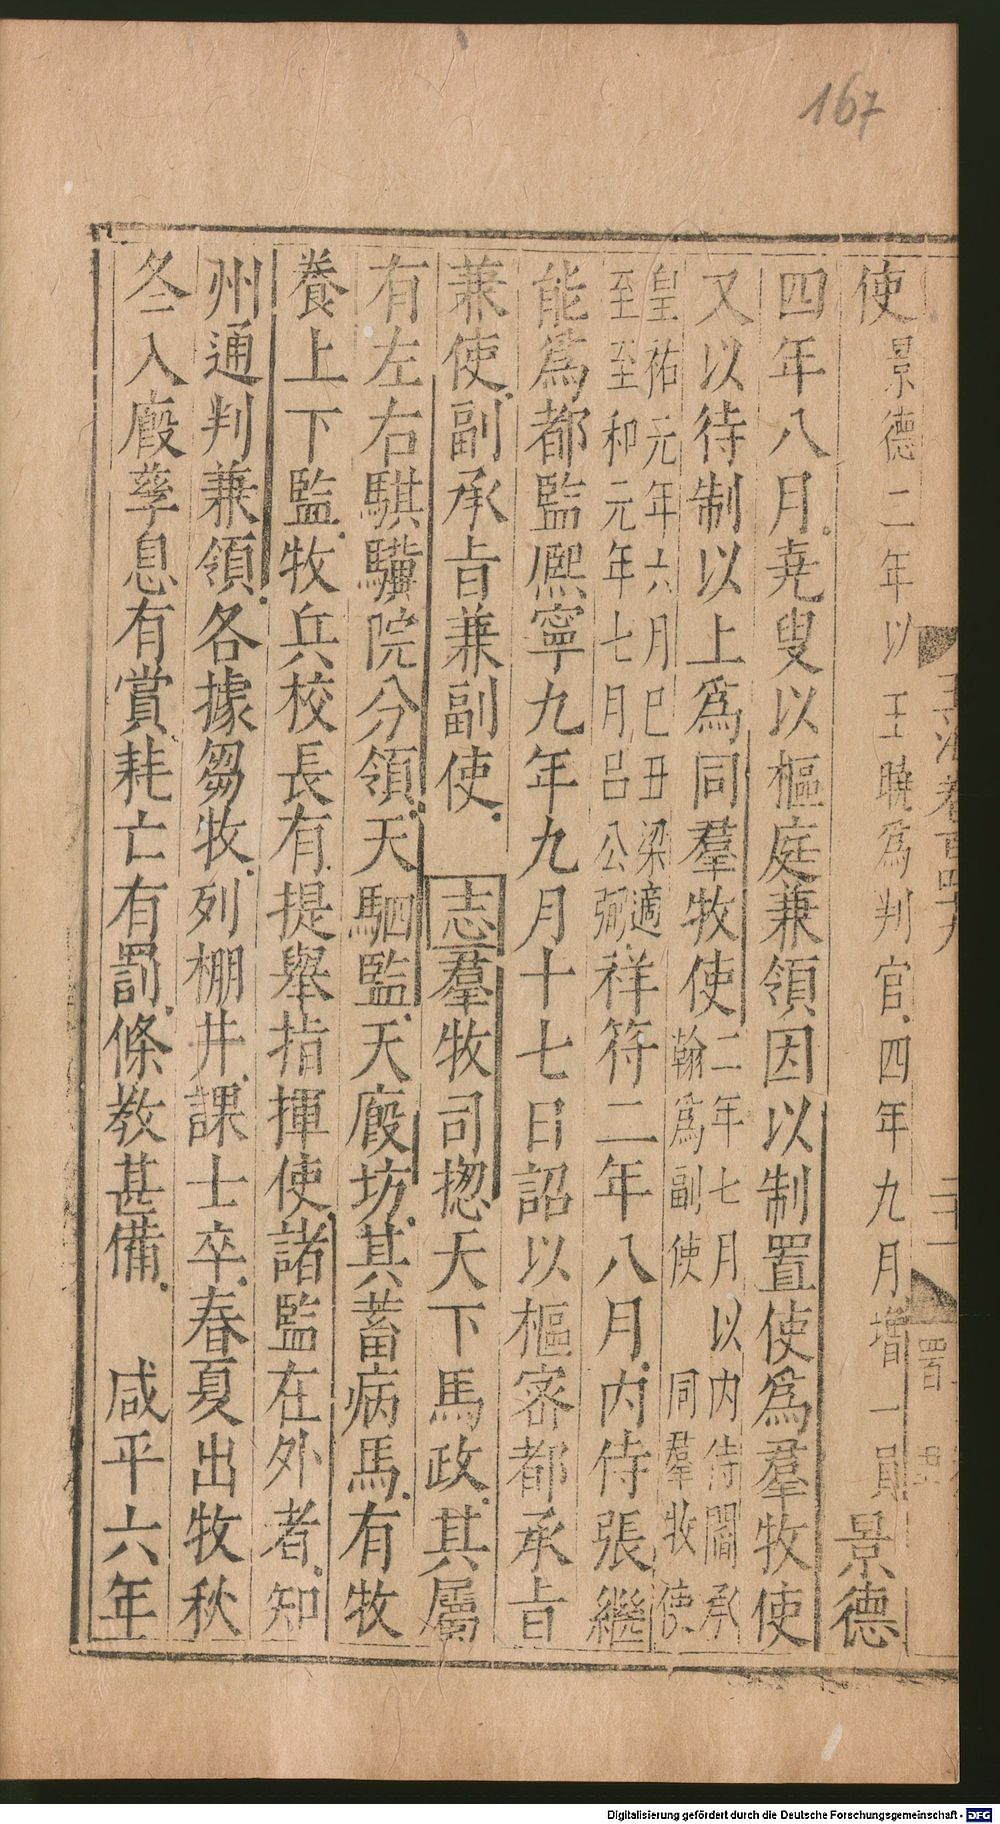 167
使景德二年以王曉為判官四年九月增一員 景德
四年八月堯叟以樞庭兼領因以制置使為羣牧使
又以待制以上為同羣牧使二年七月以内侍閻承翰為副使
同羣牧使
皇祐元年六月己丑梁適
至至和元年七月呂公弼祥符二年八月内侍張繼
能為都監熈寧九年九月十七日詔以樞密都承旨
兼使副承旨兼副使 志羣牧司揔天下馬政其屬
有左右騏驥院分領天駟監天廐坊其蓄病馬有牧
養上下監牧兵校長有提舉指揮使諸監在外者知
州通判兼領各據芻牧列棚井課士卒春夏出牧秋
冬入廐孳息有賞耗亡有罰條教甚備 咸平六年
Digitalisierung gefördert durch die Deutsche Forschungsgemeinschaft - DFG